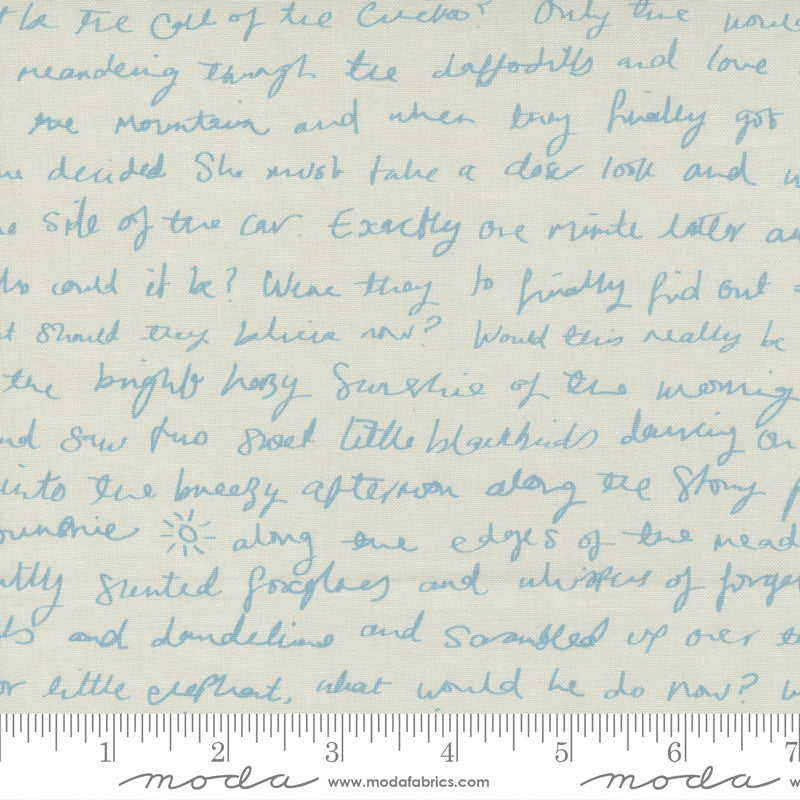 the Call of the Cuckoo? Only time would
meandering through the daffodills and love
the mountain and when they finally got
decided She must take a closer look and
side of the car. Exactly one minute later
could it be? Were they to finally find out
should they believe now? Would this really be
the bright hazy Sunshine of the morning
and saw two sweet little blackbirds dancing on
into the breezy afternoon along the Stony
sunshine along the edges of the
scented foxgloves and whispers of
and dandelions and scrambled up over
or little elephant, what would he do now?
1 2 3 4 5 6 7
moda www.modafabrics.com moda w